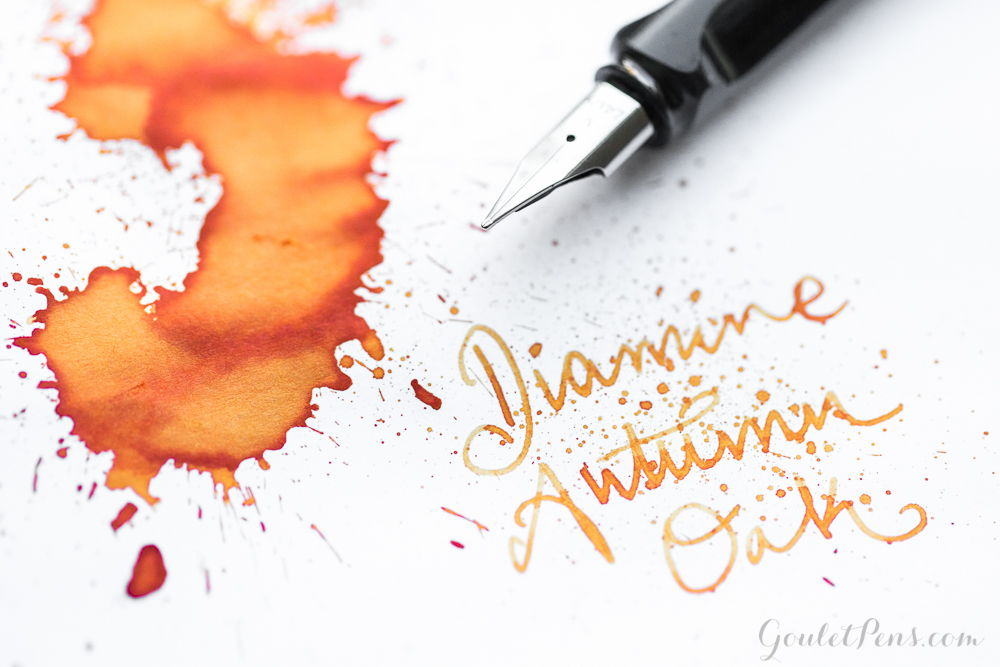 Diamine
Autumn
Oak
GouletPens.com